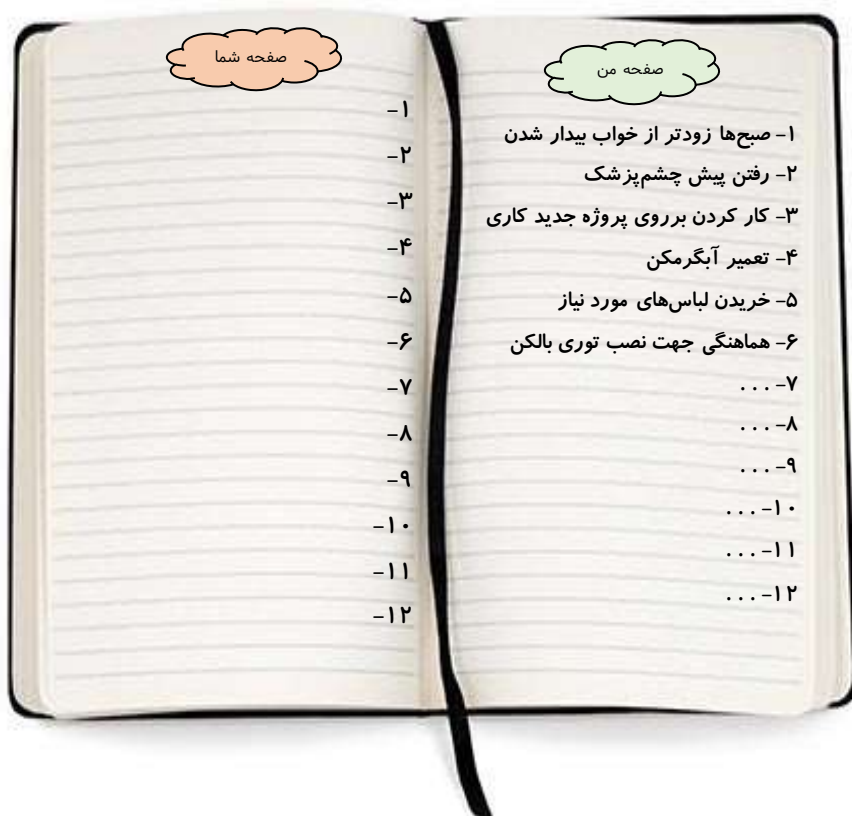 صفحه من
۱- صبح‌ها زودتر از خواب بیدار شدن
۲- رفتن پیش چشم‌پزشک
۳- کار کردن برروی پروژه جدید کاری
۴- تعمیر آبگرمکن
۵- خریدن لباس‌های مورد نیاز
۶- هماهنگی جهت نصب توری بالکن
۷- ...
۸- ...
۹- ...
۱۰- ...
۱۱- ...
۱۲- ...
صفحه شما
۱-
۲-
۳-
۴-
۵-
۶-
۷-
۸-
۹-
۱۰-
۱۱-
۱۲-